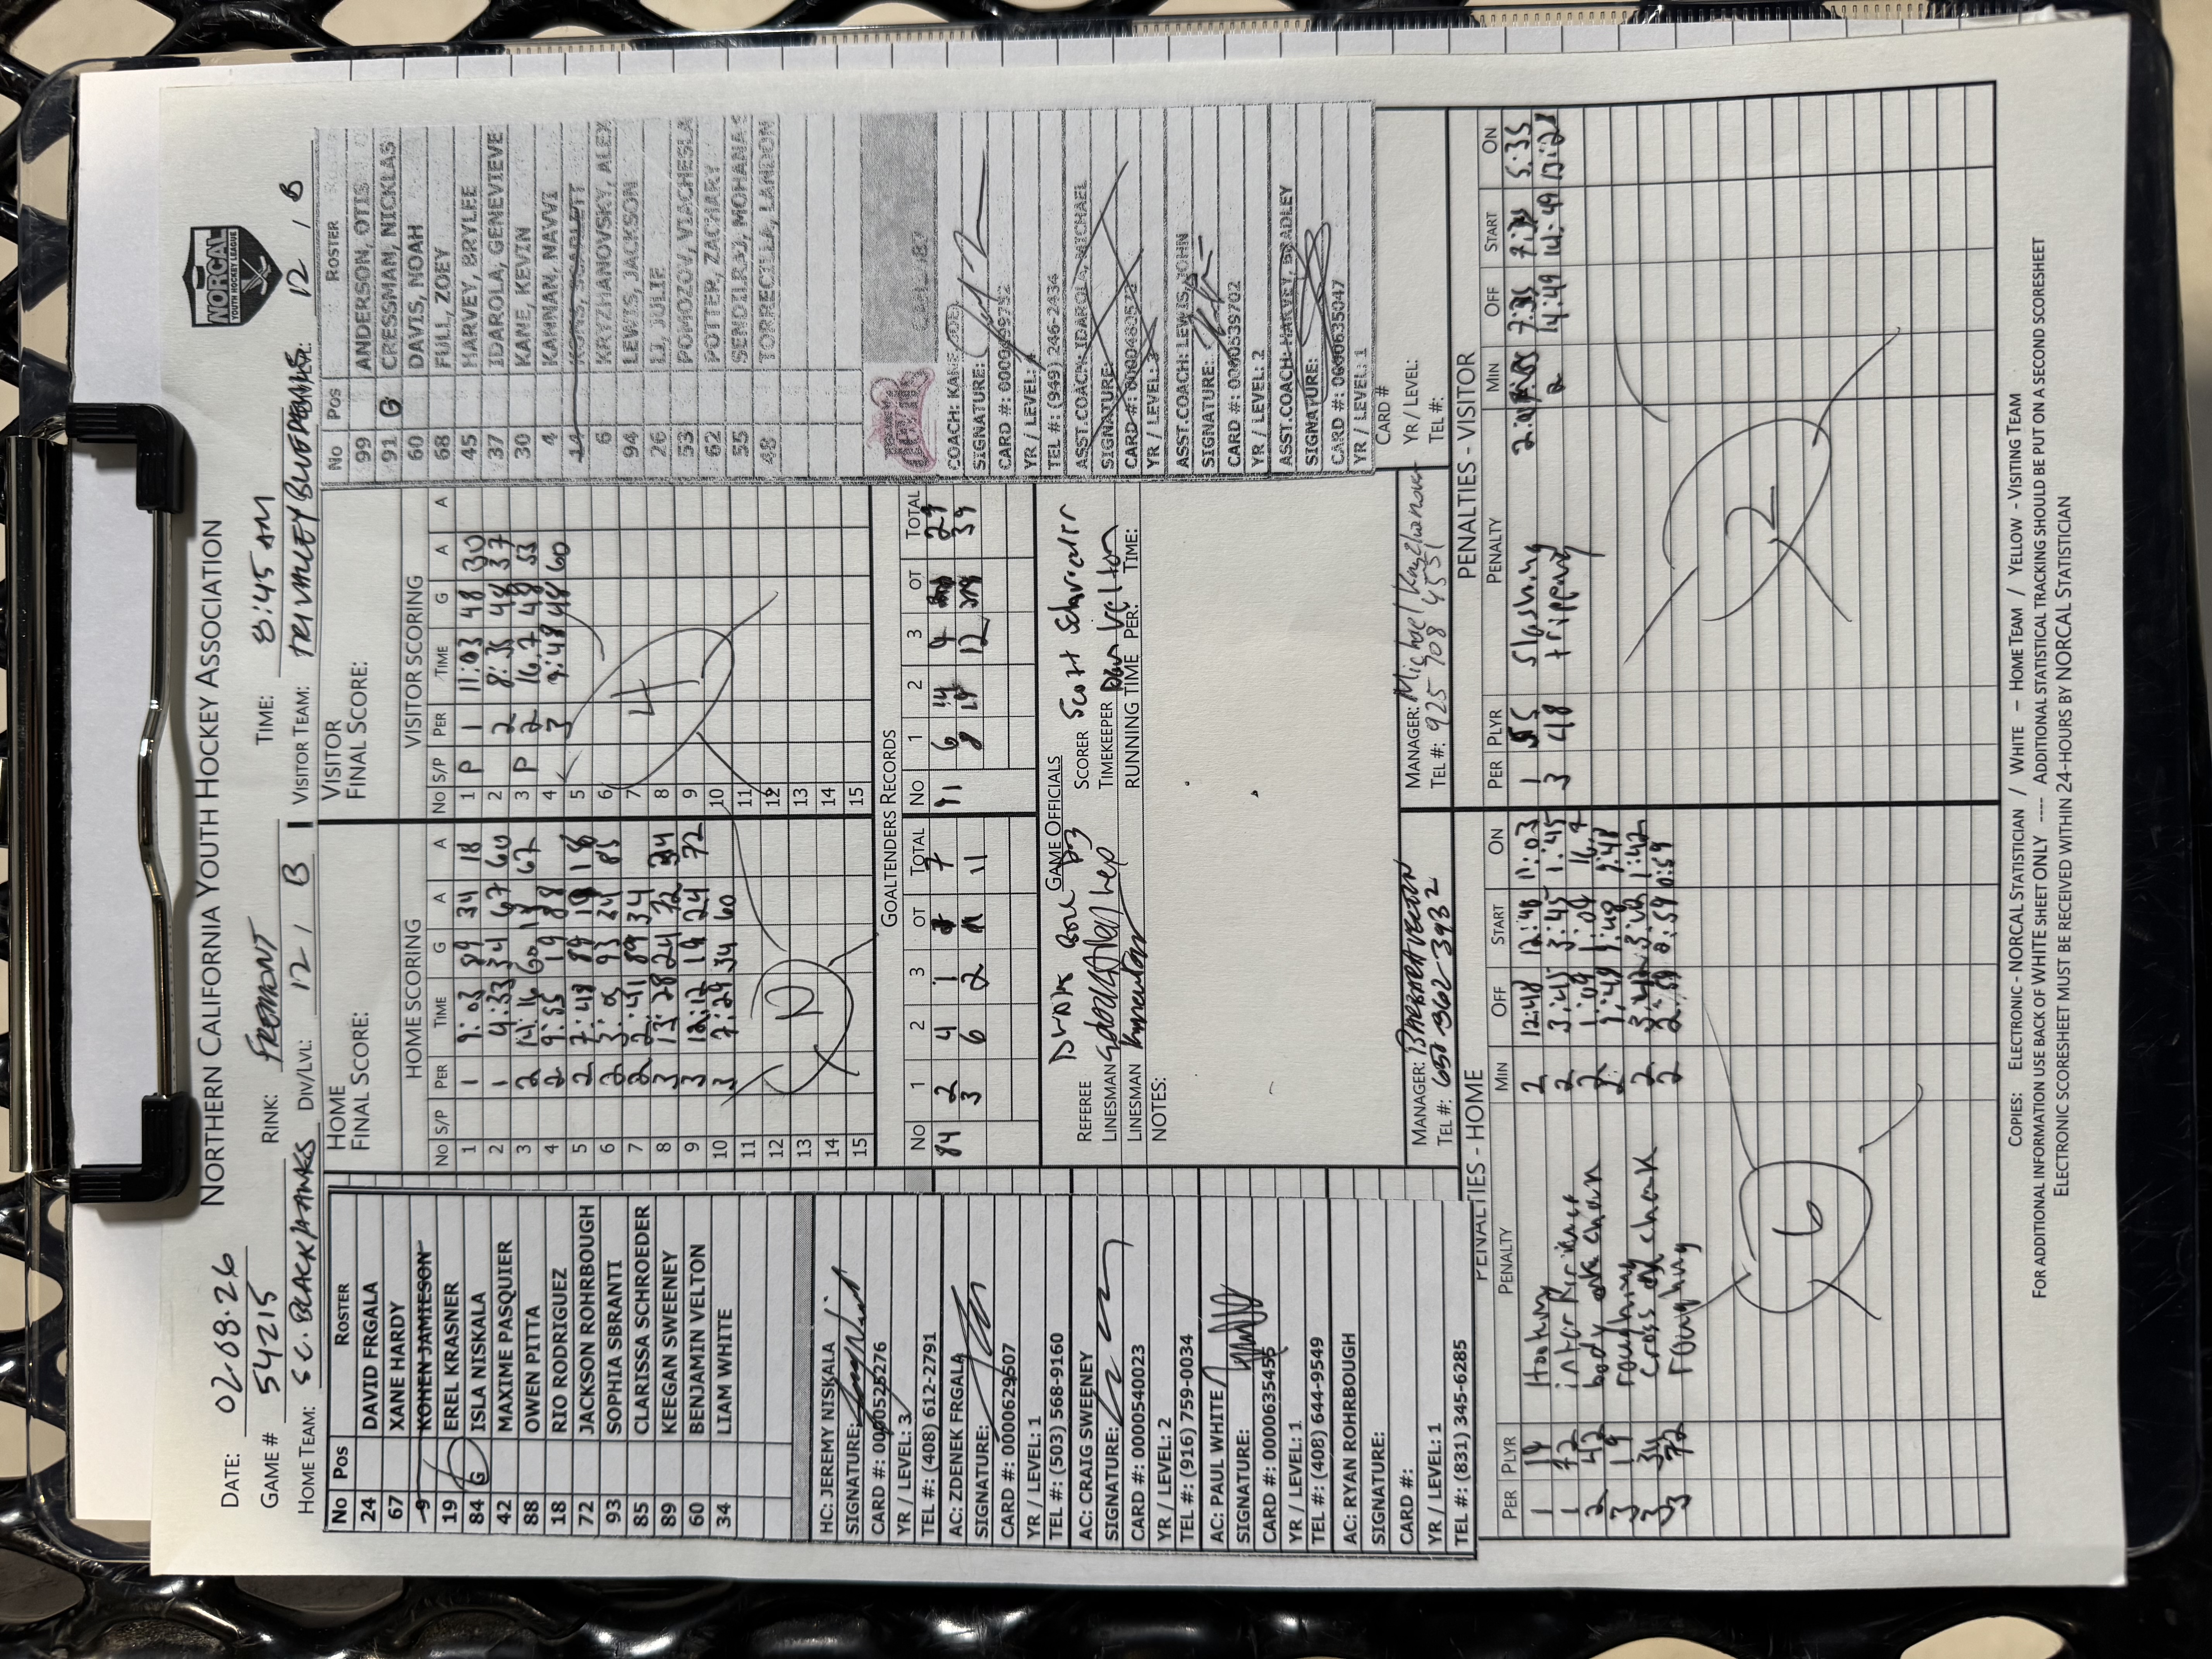 NORTHERN CALIFORNIA YOUTH HOCKEY ASSOCIATION
NORCAL
YOUTH HOCKEY LEAGUE
DATE: 02.08.26 RINK: FREMONT TIME: 8:45 AM
GAME # 54215
HOME TEAM: S.C. BLACKHAWKS DIV/LVL: 12 / B VISITOR TEAM: TRI VALLEY BLUE DEVILS 12 / B
No Pos ROSTER
24 DAVID FRGALA
67 XANE HARDY
9 KOHEN JAMIESON
19 EREL KRASNER
84 G ISLA NISKALA
42 MAXIME PASQUIER
88 OWEN PITTA
18 RIO RODRIGUEZ
72 JACKSON ROHRBOUGH
93 SOPHIA SBRANTI
85 CLARISSA SCHROEDER
89 KEEGAN SWEENEY
60 BENJAMIN VELTON
34 LIAM WHITE
HC: JEREMY NISKALA
SIGNATURE:
CARD #: 0000525276
YR / LEVEL: 3
TEL #: (408) 612-2791
AC: ZDENEK FRGALA
SIGNATURE:
CARD #: 0000629607
YR / LEVEL: 1
TEL #: (503) 568-9160
AC: CRAIG SWEENEY
SIGNATURE:
CARD #: 0000540023
YR / LEVEL: 2
TEL #: (916) 759-0034
AC: PAUL WHITE
SIGNATURE:
CARD #: 0000635455
YR / LEVEL: 1
TEL #: (408) 644-9549
AC: RYAN ROHRBOUGH
SIGNATURE:
CARD #:
YR / LEVEL: 1
TEL #: (831) 345-6285
HOME
FINAL SCORE:
HOME SCORING
No S/P PER TIME G A A
1 1 9:03 89 34 18
2 1 4:33 34 67 60
3 2 14:16 60 18 67
4 2 9:55 19 88
5 2 7:48 89 19 18
6 2 3:05 93 24 85
7 2 2:41 89 34
8 3 13:28 24 72 34
9 3 12:12 19 24 72
10 3 7:29 34 60
11
12
13
14
15
10
VISITOR
FINAL SCORE:
VISITOR SCORING
No S/P PER TIME G A A
1 P 1 11:03 48 30
2 2 8:35 48 37
3 P 2 16.7 48 53
4 3 9:48 48 60
5
6
7
8
9
10
11
12
13
14
15
4
GOALTENDERS RECORDS
No 1 2 3 OT TOTAL No 1 2 3 OT TOTAL
84 2 4 1 7 91 6 14 9 29
3 6 2 11 8 19 12 39
GAME OFFICIALS
REFEREE SCORER Scott Schroeder
LINESMAN TIMEKEEPER Velton
LINESMAN RUNNING TIME PER: TIME:
NOTES:
MANAGER: BARBARA VELTON
TEL #: 650-362-3932
MANAGER: Michael
TEL #: 925 708 4551
No Pos ROSTER
99 ANDERSON, OTIS
91 G CRESSMAN, NICKLAS
60 DAVIS, NOAH
68 FULL, ZOEY
45 HARVEY, BRYLEE
37 IDAROLA, GENEVIEVE
30 KANE, KEVIN
4 KANNAN, NAVVI
14 KONS, SCARLETT
6 KRYZHANOVSKY, ALEX
94 LEWIS, JACKSON
26 LI, JULIE
53 POMOZOV, VIACHESLA
62 POTTER, ZACHARY
55 SENDILRAJ, MOHANA
48 TORRECILLA, LANDON
COACH: KANE, JOEL
SIGNATURE:
CARD #: 0000499752
YR / LEVEL: 4
TEL #: (949) 246-2434
ASST.COACH: IDAROLA, MICHAEL
SIGNATURE:
YR / LEVEL: 3
ASST.COACH: LEWIS, JOHN
SIGNATURE:
CARD #: 0000539702
YR / LEVEL: 2
ASST.COACH: HARVEY, BRADLEY
SIGNATURE:
CARD #: 0000635047
YR / LEVEL: 1
CARD #
YR / LEVEL:
TEL #:
PENALTIES - HOME
PER PLYR PENALTY MIN OFF START ON
1 19 Hooking 2 12:48 12:48 11:03
1 72 interference 2 3:45 3:45 1:45
2 42 body check 2 1:04 1:04 16.7
3 19 roughing 2 9:48
3 34 cross check 2 3:42 3:42 1:42
3 72 roughing 2 2:59 0:59
6
PENALTIES - VISITOR
PER PLYR PENALTY MIN OFF START ON
1 55 slashing 2 7:35 7:35 5:35
3 48 tripping 2 14:49 14:49 13:28
2
COPIES: ELECTRONIC - NORCAL STATISTICIAN / WHITE – HOME TEAM / YELLOW - VISITING TEAM
FOR ADDITIONAL INFORMATION USE BACK OF WHITE SHEET ONLY ---- ADDITIONAL STATISTICAL TRACKING SHOULD BE PUT ON A SECOND SCORESHEET
ELECTRONIC SCORESHEET MUST BE RECEIVED WITHIN 24-HOURS BY NORCAL STATISTICIAN